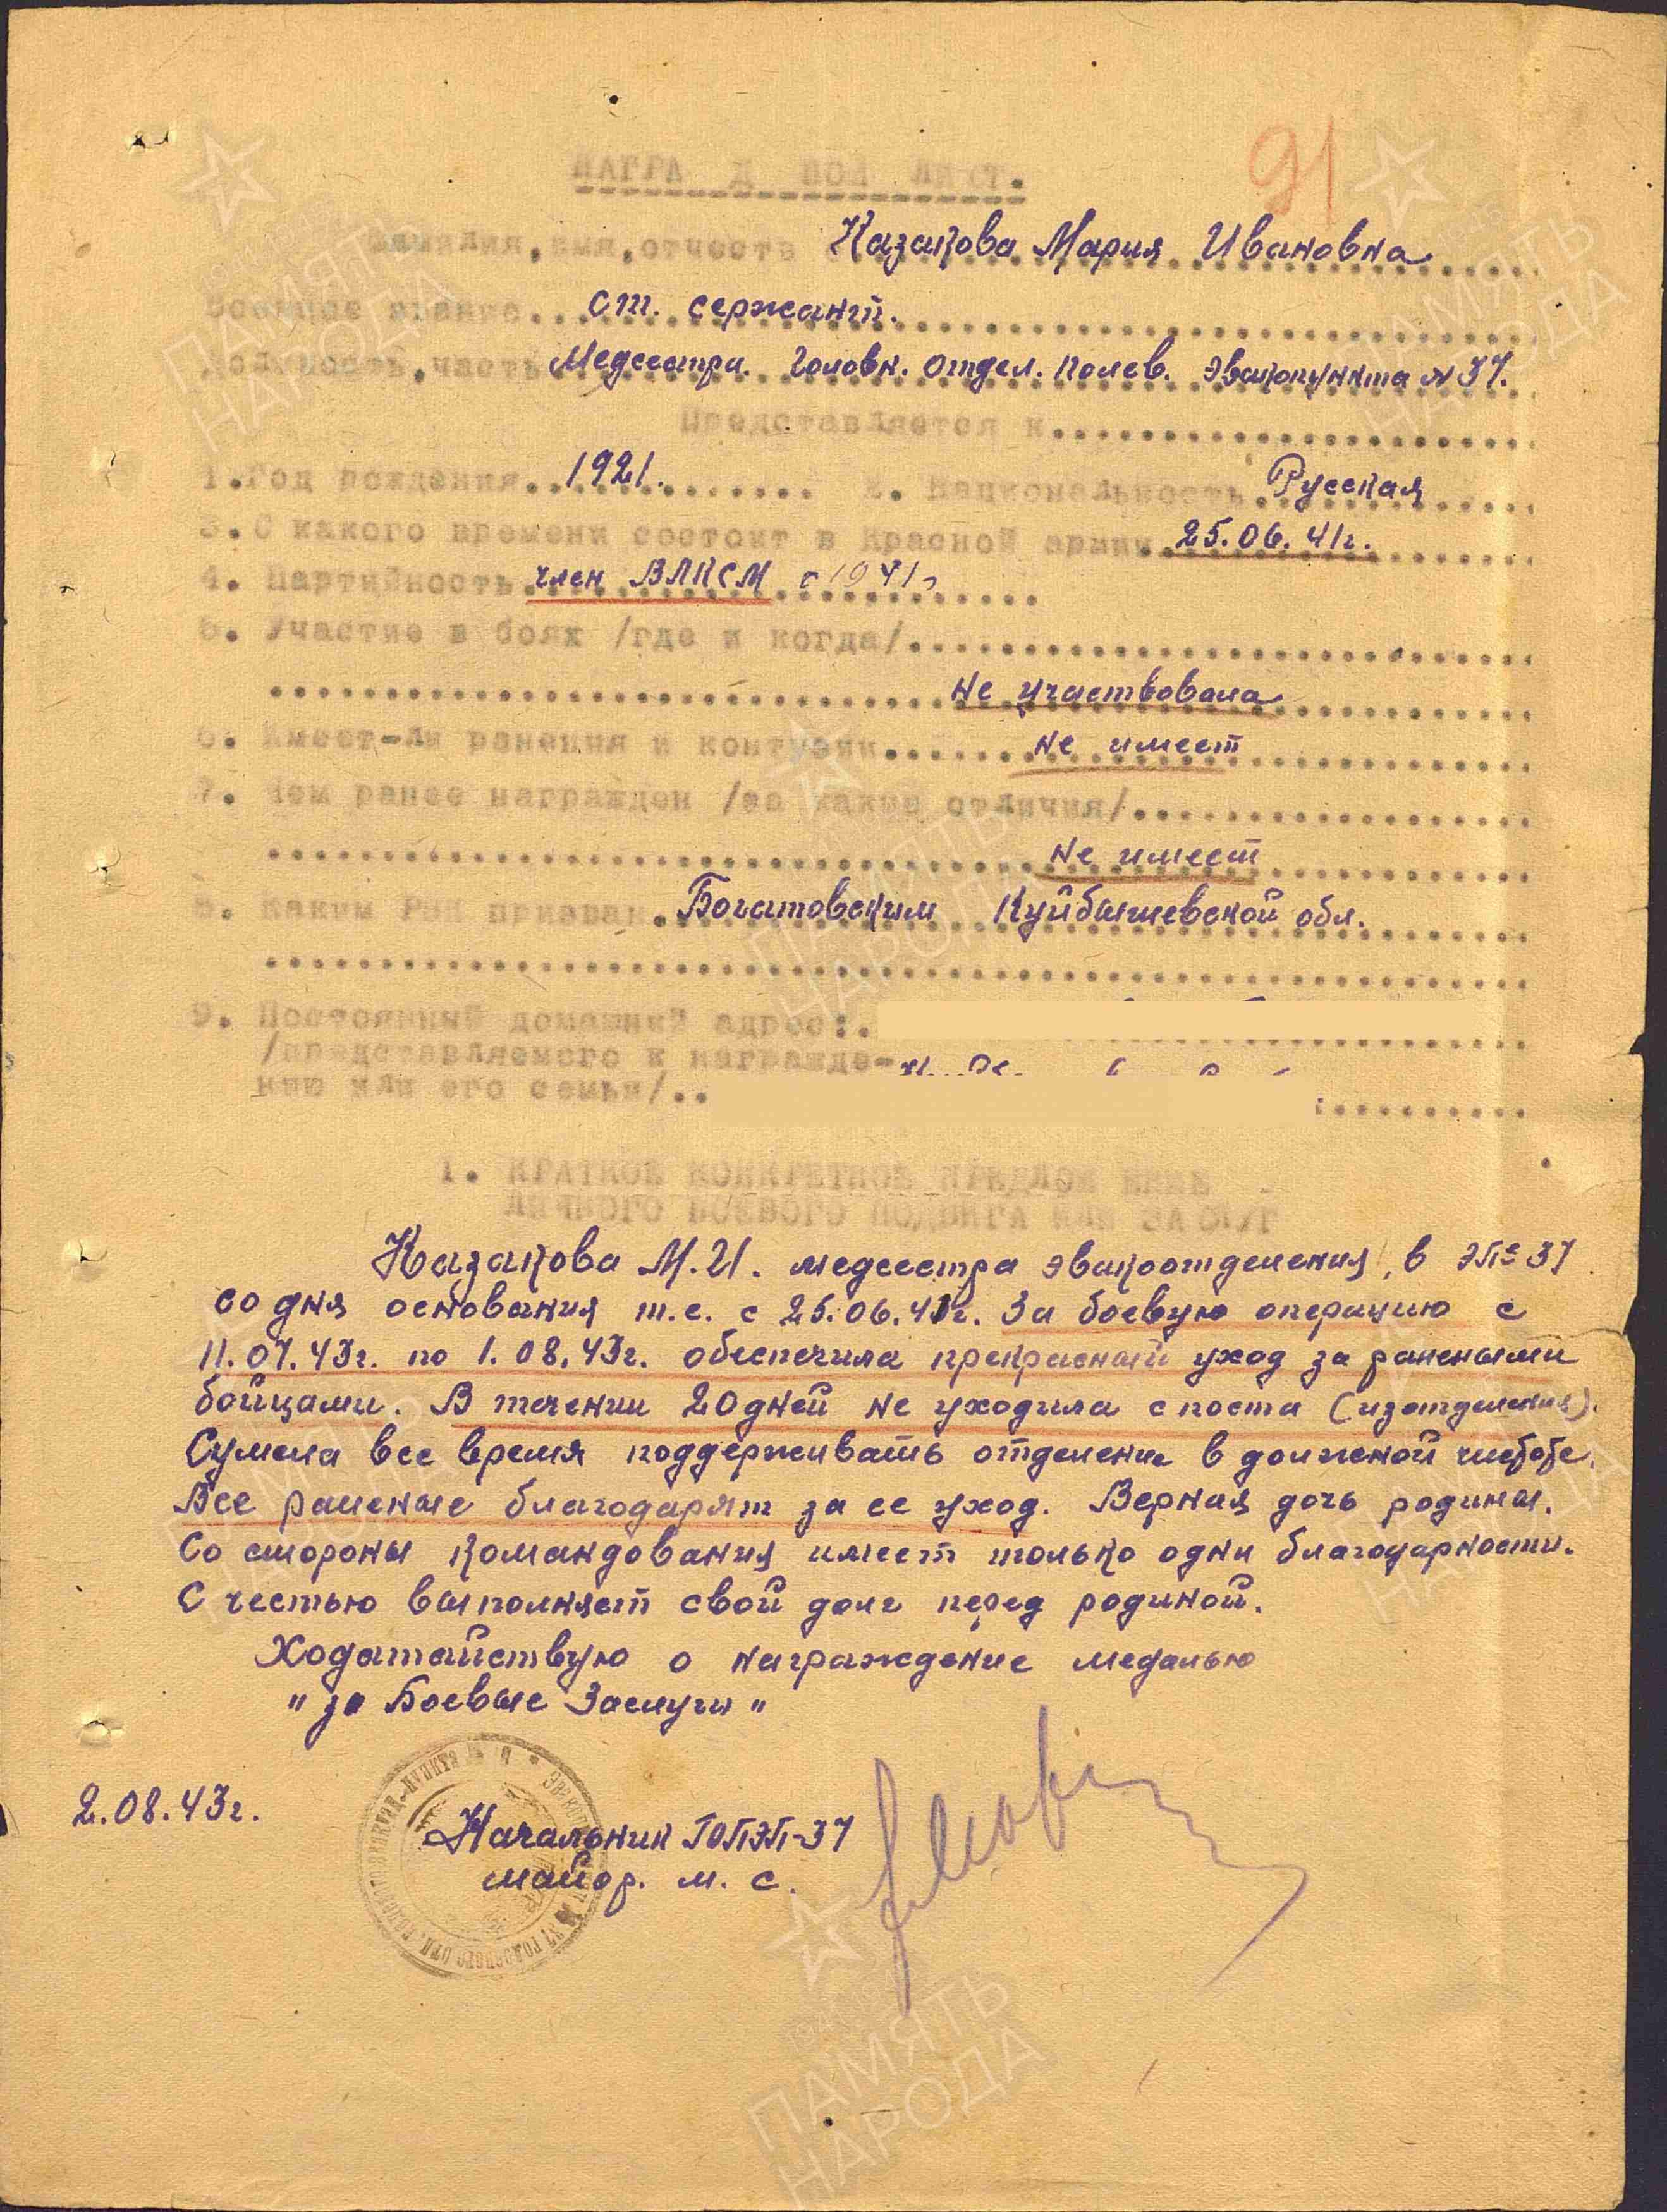 91
НАГРА Д НОЙ ЛИСТ.
Фамилия, имя, отчество Казакова Мария Ивановна
Военное звание ст. сержант.
Должность, часть Медсестра. Головн. отдел. полев. эвакопункта № 37.
Представляется к
1. Год рождения 1921. 2. Национальность Русская
3. С какого времени состоит в Красной армии 25.06.41г.
4. Партийность член ВЛКСМ с 1941г
5. Участие в боях /где и когда/
Не участвовала
6. Имеет-ли ранения и контузии не имеет
7. Чем ранее награжден /за какие отличия/
Не имеет
8. Каким РВК призван Богатовским Куйбышевской обл.
9. Постоянный домашний адрес:
/представляемого к награжде-
нию или его семьи/
1. КРАТКОЕ КОНКРЕТНОЕ ПРЕДЛОЖ ЕНИЕ
ЛИЧНОГО БОЕВОГО ПОДВИГА ИЛИ ЗАСЛУГ
Казакова М.И. медсестра эвакоотделения, в ЭП 37
со дня основания т.е. с 25.06.41г. За боевую операцию с
11.07.43г. по 1.08.43г. обеспечила прекрасный уход за ранеными
бойцами. В течении 20 дней не уходила с поста (из отделения).
Сумела все время поддерживать отделение в должной чистоте.
Все раненые благодарят за ее уход. Верная дочь родины.
Со стороны командования имеет только одни благодарности.
С честью выполняет свой долг перед родиной.
Ходатайствую о награждение медалью
"за Боевые Заслуги"
2.08.43г.
Начальник ГОПЭП-37
майор. м. с.
ПАМЯТЬ
НАРОДА